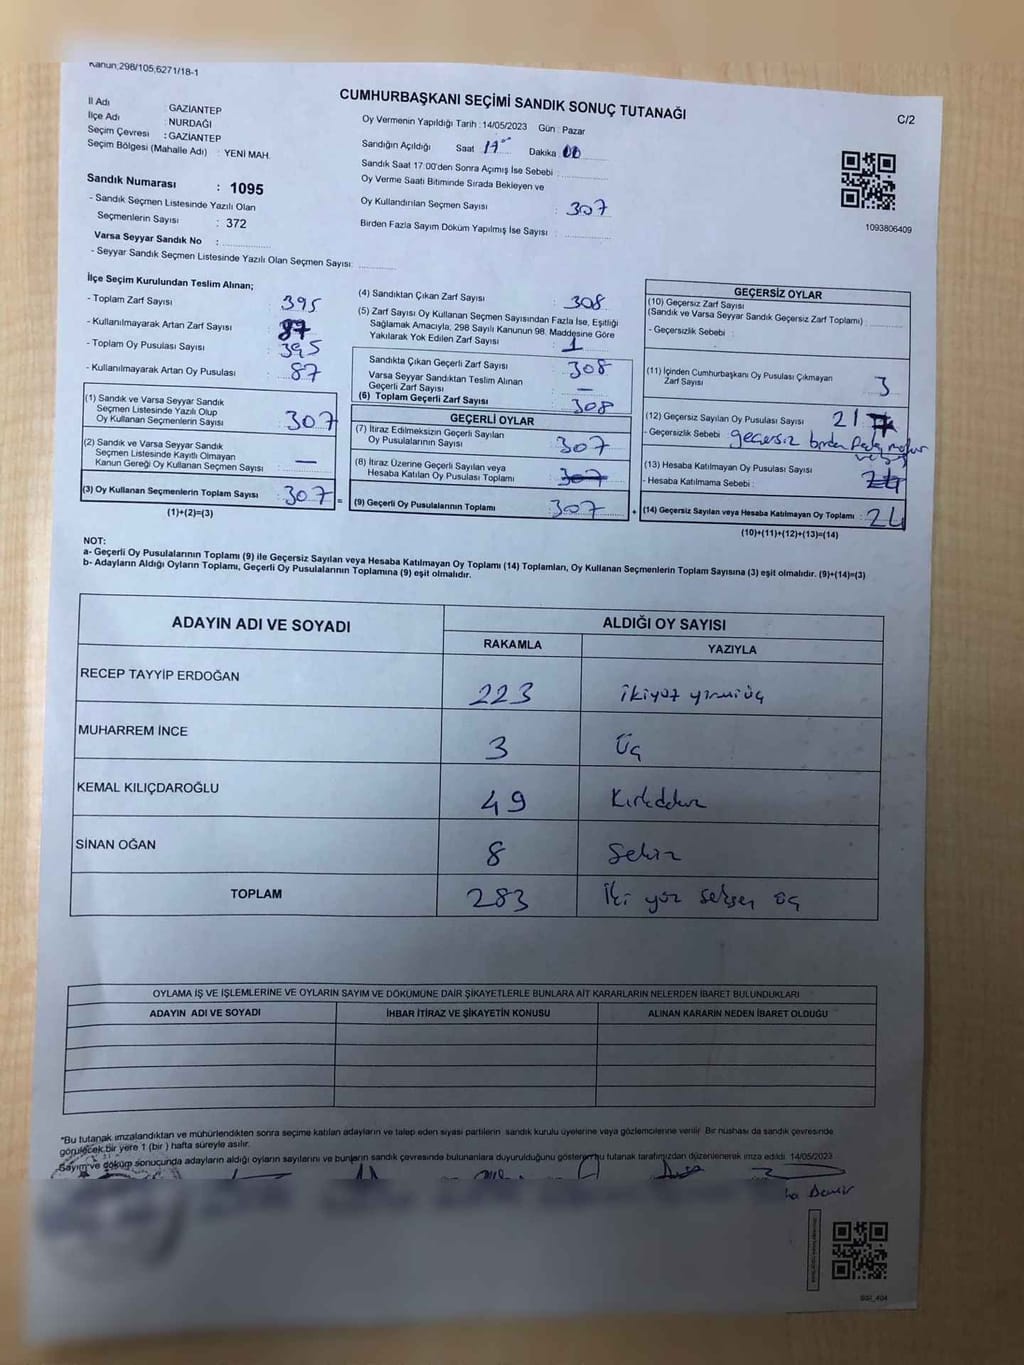 Kanun;298/105,6271/18-1
CUMHURBAŞKANI SEÇİMİ SANDIK SONUÇ TUTANAĞI
C/2
İl Adı : GAZİANTEP
İlçe Adı : NURDAĞI
Seçim Çevresi : GAZİANTEP
Seçim Bölgesi (Mahalle Adı) : YENİ MAH.
Oy Vermenin Yapıldığı Tarih : 14/05/2023 Gün : Pazar
Sandığın Açıldığı Saat 17 Dakika 00
Sandık Saat 17:00'den Sonra Açımış İse Sebebi :
Oy Verme Saati Bitiminde Sırada Bekleyen ve
Oy Kullandırılan Seçmen Sayısı : 307
Birden Fazla Sayım Döküm Yapılmış İse Sayısı :
1093806409
Sandık Numarası : 1095
- Sandık Seçmen Listesinde Yazılı Olan
Seçmenlerin Sayısı : 372
Varsa Seyyar Sandık No :
- Seyyar Sandık Seçmen Listesinde Yazılı Olan Seçmen Sayısı:
İlçe Seçim Kurulundan Teslim Alınan;
- Toplam Zarf Sayısı : 395
- Kullanılmayarak Artan Zarf Sayısı : 87
- Toplam Oy Pusulası Sayısı : 395
- Kullanılmayarak Artan Oy Pusulası : 87
(1) Sandık ve Varsa Seyyar Sandık
Seçmen Listesinde Yazılı Olup
Oy Kullanan Seçmenlerin Sayısı : 307
(2) Sandık ve Varsa Seyyar Sandık
Seçmen Listesinde Kayıtlı Olmayan
Kanun Gereği Oy Kullanan Seçmen Sayısı : —
(3) Oy Kullanan Seçmenlerin Toplam Sayısı : 307 =
(1)+(2)=(3)
(4) Sandıktan Çıkan Zarf Sayısı : 308
(5) Zarf Sayısı Oy Kullanan Seçmen Sayısından Fazla İse, Eşitliği
Sağlamak Amacıyla, 298 Sayılı Kanunun 98. Maddesine Göre
Yakılarak Yok Edilen Zarf Sayısı : 1
Sandıkta Çıkan Geçerli Zarf Sayısı : 308
Varsa Seyyar Sandıktan Teslim Alınan
Geçerli Zarf Sayısı : —
(6) Toplam Geçerli Zarf Sayısı : 308
GEÇERLİ OYLAR
(7) İtiraz Edilmeksizin Geçerli Sayılan
Oy Pusulalarının Sayısı : 307
(8) İtiraz Üzerine Geçerli Sayılan veya
Hesaba Katılan Oy Pusulası Toplamı : 307
(9) Geçerli Oy Pusulalarının Toplamı : 307 +
GEÇERSİZ OYLAR
(10) Geçersiz Zarf Sayısı
(Sandık ve Varsa Seyyar Sandık Geçersiz Zarf Toplamı) :
- Geçersizlik Sebebi :
(11) İçinden Cumhurbaşkanı Oy Pusulası Çıkmayan
Zarf Sayısı : 3
(12) Geçersiz Sayılan Oy Pusulası Sayısı : 21
- Geçersizlik Sebebi : geçersiz birden fazla mühür
(13) Hesaba Katılmayan Oy Pusulası Sayısı : 24
- Hesaba Katılmama Sebebi :
(14) Geçersiz Sayılan veya Hesaba Katılmayan Oy Toplamı : 24
(10)+(11)+(12)+(13)=(14)
NOT:
a- Geçerli Oy Pusulalarının Toplamı (9) ile Geçersiz Sayılan veya Hesaba Katılmayan Oy Toplamı (14) Toplamları, Oy Kullanan Seçmenlerin Toplam Sayısına (3) eşit olmalıdır. (9)+(14)=(3)
b- Adayların Aldığı Oyların Toplamı, Geçerli Oy Pusulalarının Toplamına (9) eşit olmalıdır.
ADAYIN ADI VE SOYADI
ALDIĞI OY SAYISI
RAKAMLA YAZIYLA
RECEP TAYYİP ERDOĞAN 223 ikiyüz yirmi üç
MUHARREM İNCE 3 Üç
KEMAL KILIÇDAROĞLU 49 Kırkdokuz
SİNAN OĞAN 8 Sekiz
TOPLAM 283 İki yüz seksen üç
OYLAMA İŞ VE İŞLEMLERİNE VE OYLARIN SAYIM VE DÖKÜMÜNE DAİR ŞİKAYETLERLE BUNLARA AİT KARARLARIN NELERDEN İBARET BULUNDUKLARI
ADAYIN ADI VE SOYADI İHBAR İTİRAZ VE ŞİKAYETİN KONUSU ALINAN KARARIN NEDEN İBARET OLDUĞU
*Bu tutanak imzalandıktan ve mühürlendikten sonra seçime katılan adayların ve talep eden siyasi partilerin sandık kurulu üyelerine veya gözlemcilerine verilir. Bir nüshası da sandık çevresinde
görülecek bir yere 1 (bir) hafta süreyle asılır.
Sayım ve döküm sonucunda adayların aldığı oyların sayılarını ve bunların sandık çevresinde bulunanlara duyurulduğunu gösteren bu tutanak tarafımızdan düzenlenerek imza edildi. 14/05/2023
Demir